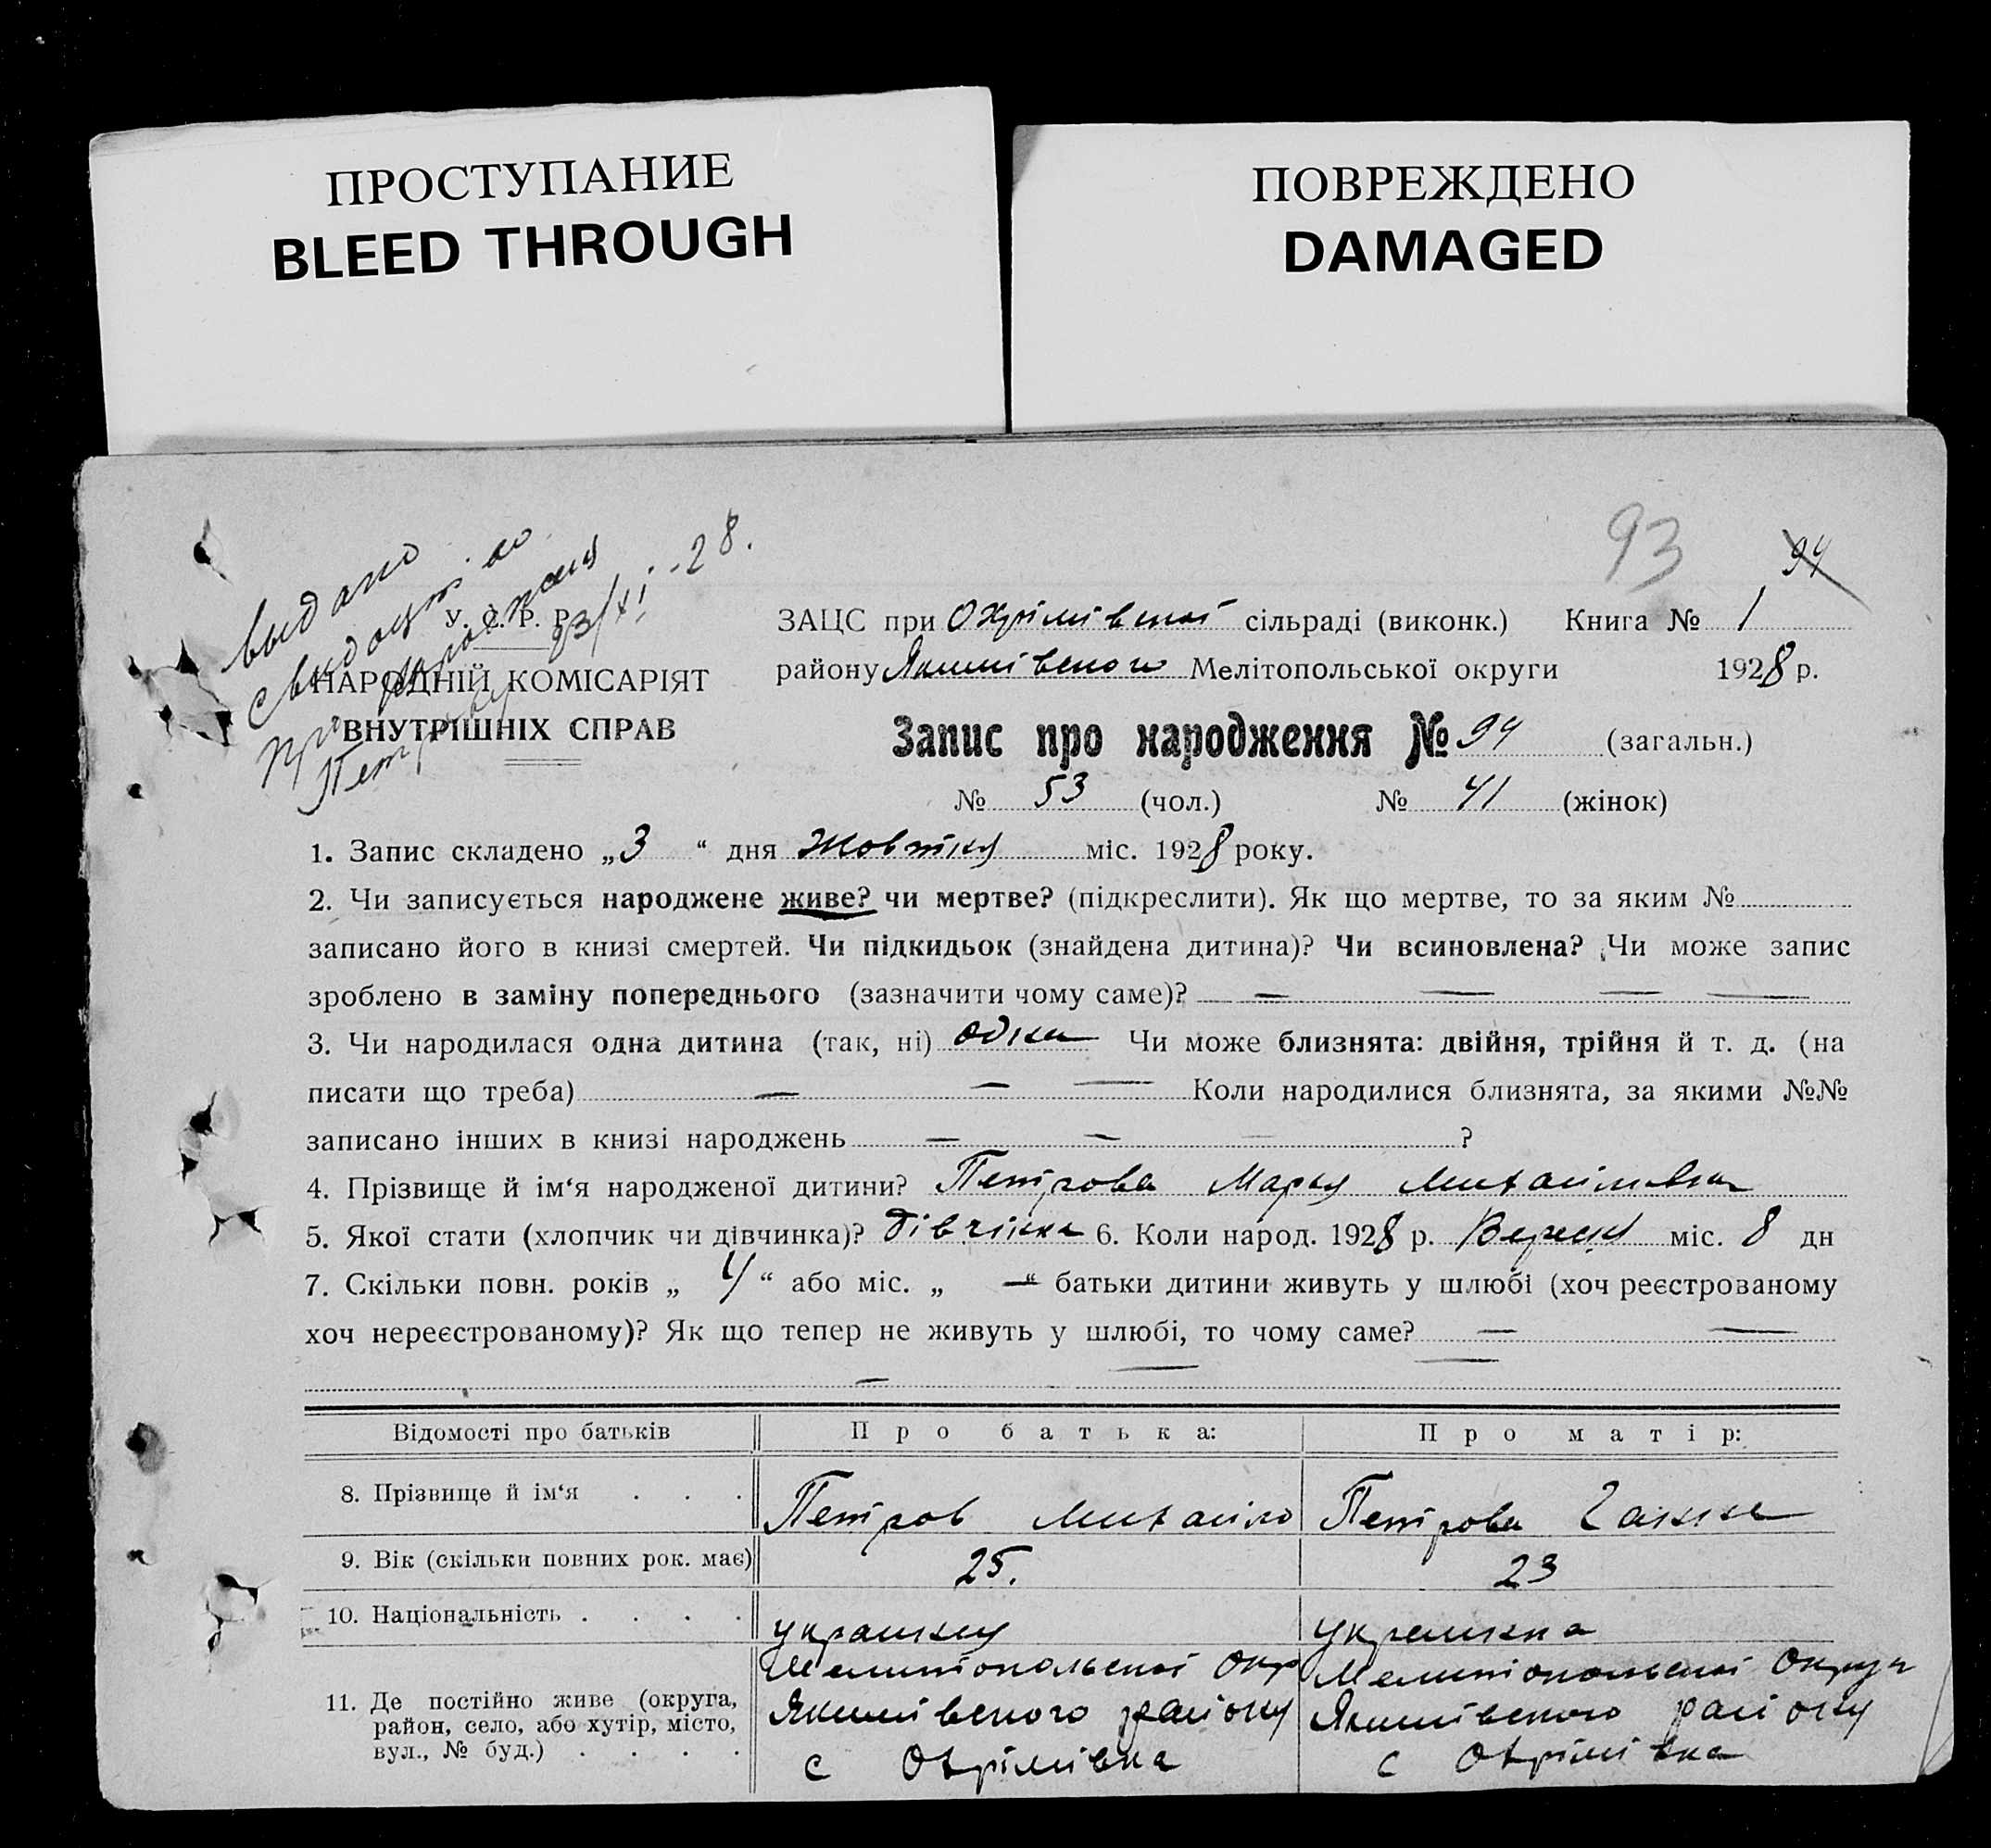 ПРОСТУПАНИЕ
BLEED THROUGH
ПОВРЕЖДЕНО
DAMAGED
93 94
выдано
свидоцт. во
про
Петрову
23/XI-28.
У. С. Р. Р.
НАРОДНІЙ КОМІСАРІЯТ
ВНУТРІШНІХ СПРАВ
ЗАЦС при Охрімівской сільраді (виконк.) Книга № 1
району Якимівеного Мелітопольської округи 1928 р.
Запис про народження № 94 (загальн.)
№ 53 (чол.) № 41 (жінок)
1. Запис складено „3“ дня Жовтню міс. 1928 року.
2. Чи записується народжене живе? чи мертве? (підкреслити). Як що мертве, то за яким №
записано його в книзі смертей. Чи підкидьок (знайдена дитина)? Чи всиновлена? Чи може запис
зроблено в заміну попереднього (зазначити чому саме)? — — — —
3. Чи народилася одна дитина (так, ні) одна Чи може близнята: двійня, трійня й т. д. (на
писати що треба) — — — Коли народилися близнята, за якими №№
записано інших в книзі народжень — — — ?
4. Прізвище й ім‘я народженої дитини? Петрова Марія Михайлівна
5. Якої стати (хлопчик чи дівчинка)? дівчінка 6. Коли народ. 1928 р. Вересня міс. 8 дн
7. Скільки повн. років „ 4 “ або міс. „ — “ батьки дитини живуть у шлюбі (хоч реєстрованому
хоч нереєстрованому)? Як що тепер не живуть у шлюбі, то чому саме? — —
— — —
Відомості про батьків Про батька: Про матір:
8. Прізвище й ім‘я . . . Петров Михайло Петрова Ганна
9. Вік (скільки повних рок. має) 25. 23
10. Національність . . . . украинец украинка
11. Де постійно живе (округа, район, село, або хутір, місто, вул., № буд.) . . . .
Мелитопольскої Окр
Якимівского району
с Охрімівка
Мелитопольскої Округи
Якимівского району
с Охрімівка